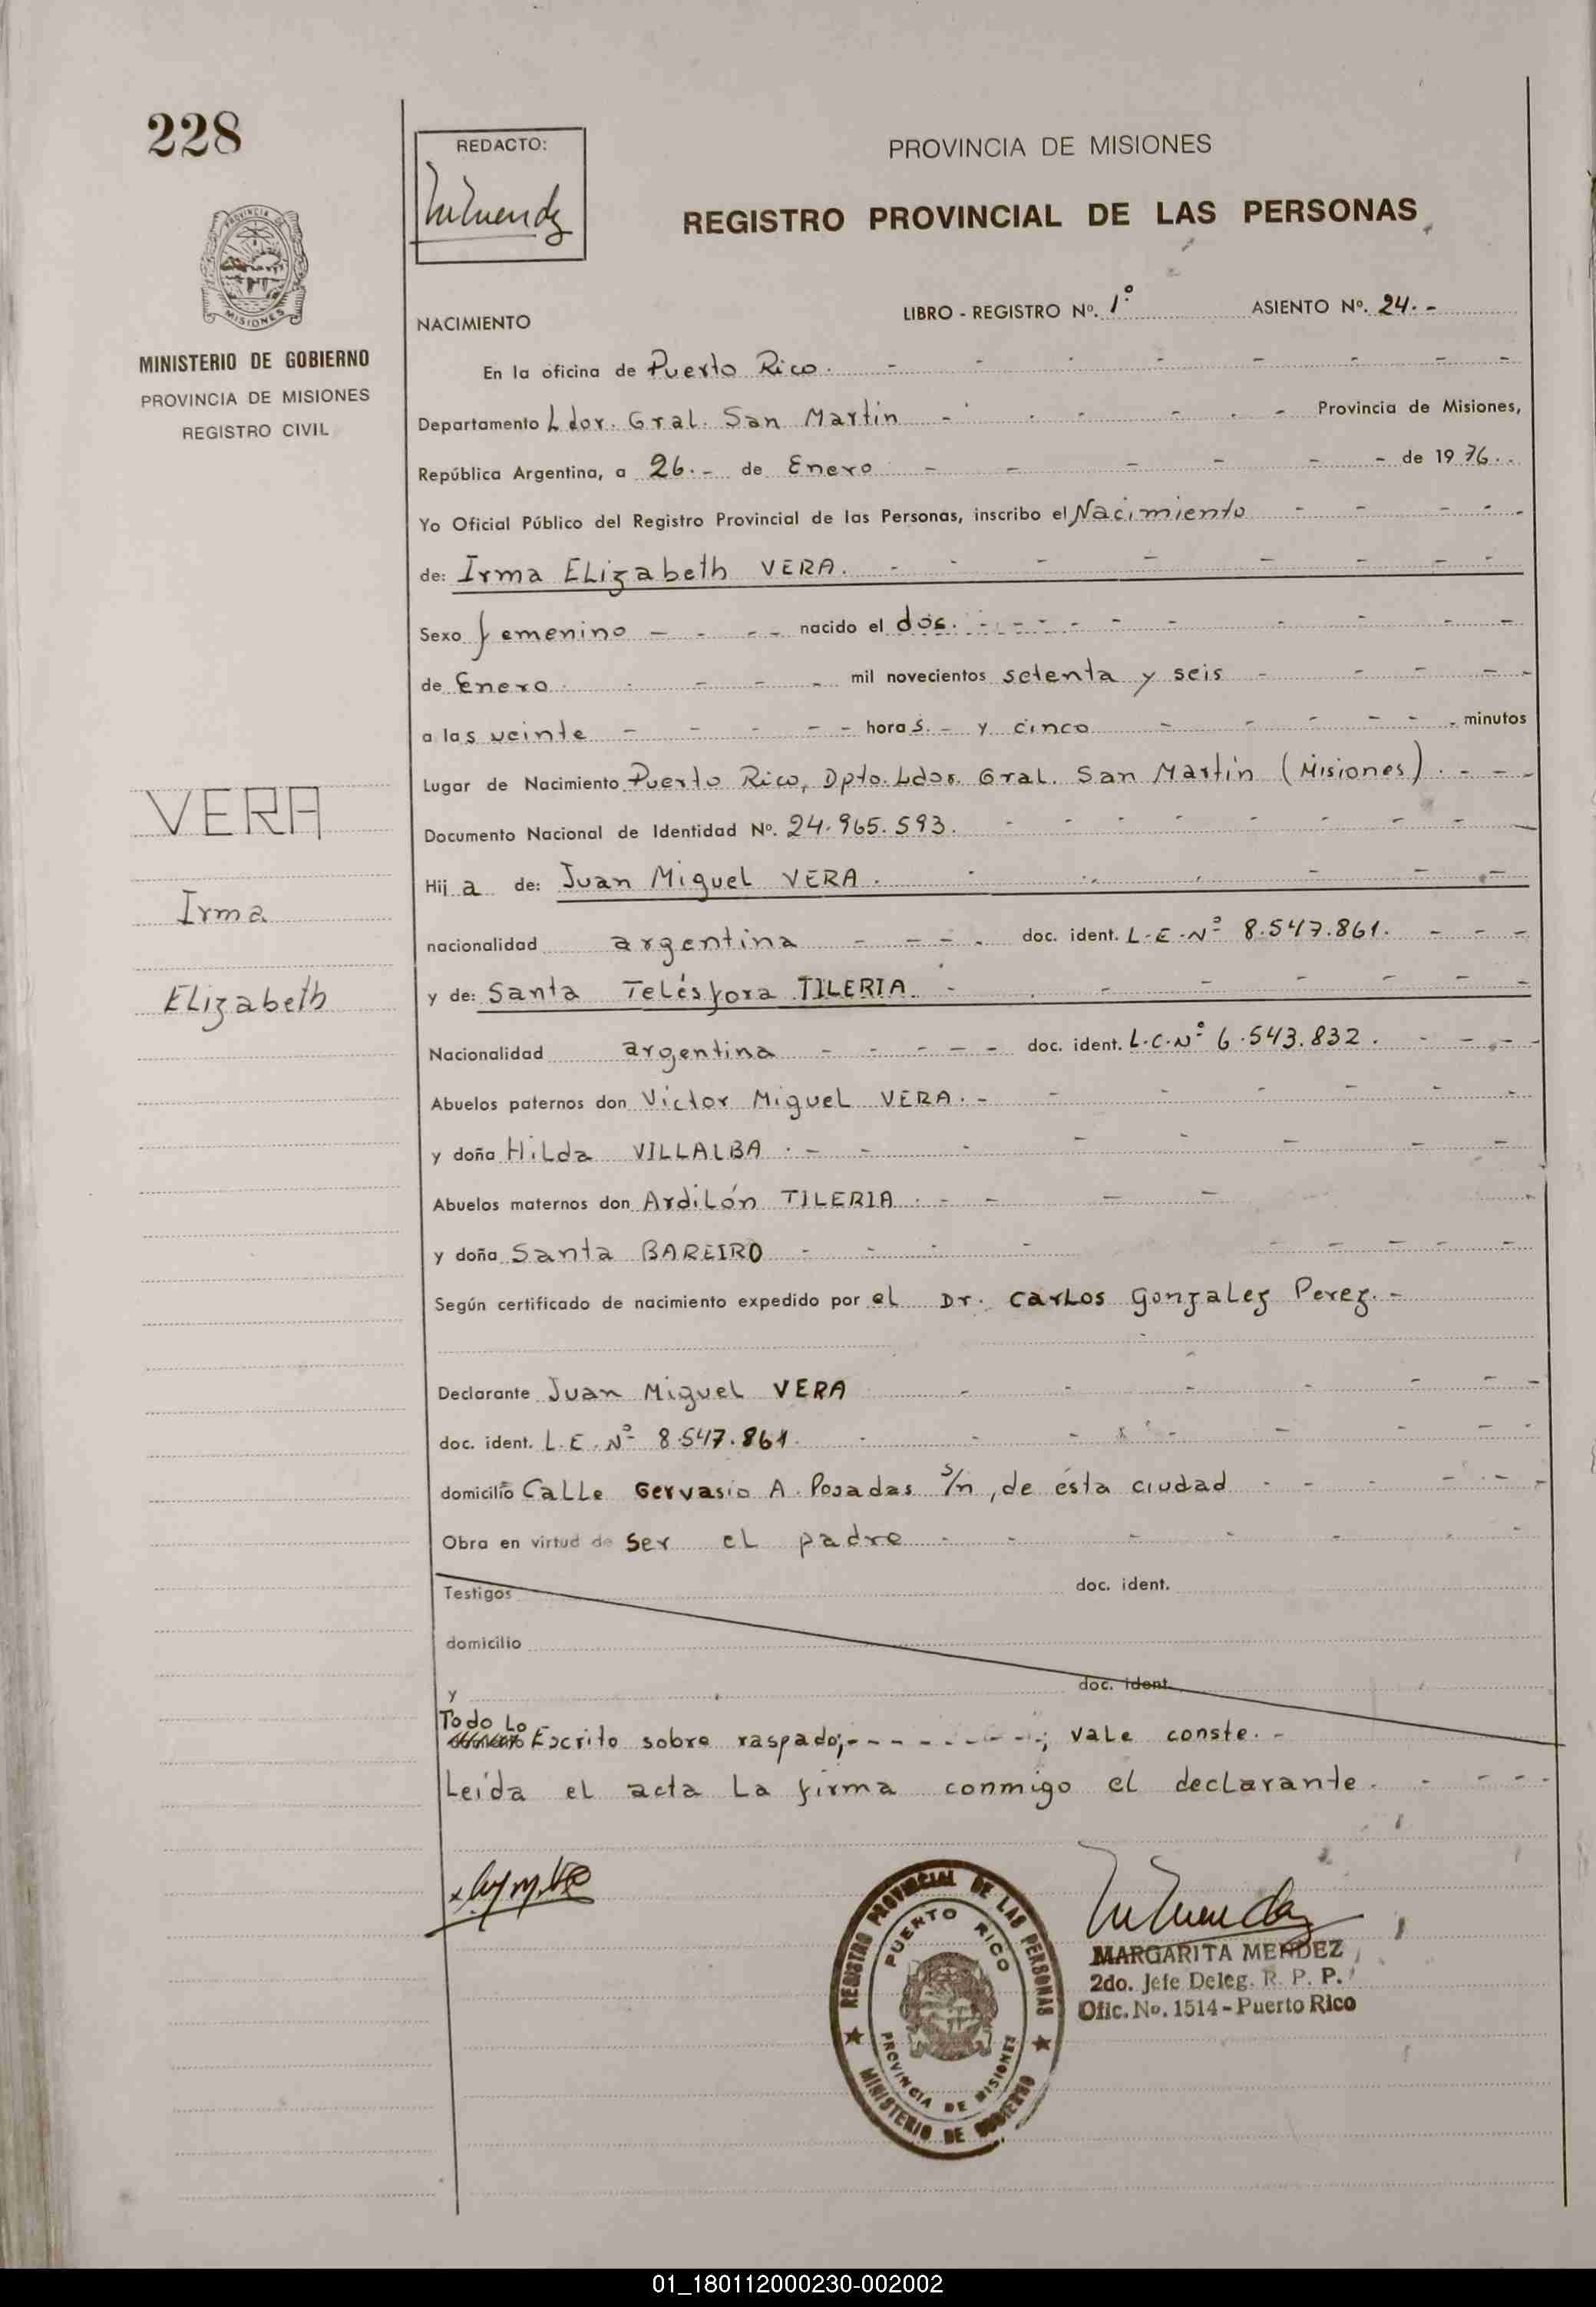 228
REDACTO:
PROVINCIA DE MISIONES
REGISTRO PROVINCIAL DE LAS PERSONAS
PROVINCIA DE MISIONES
MINISTERIO DE GOBIERNO
PROVINCIA DE MISIONES
REGISTRO CIVIL
NACIMIENTO
LIBRO - REGISTRO Nº. 1º. ASIENTO Nº. 24.-
En la oficina de Puerto Rico.
Departamento Ldor. Gral. San Martin Provincia de Misiones,
República Argentina, a 26.- de Enero de 1976.
Yo Oficial Público del Registro Provincial de las Personas, inscribo el Nacimiento
de: Irma Elizabeth VERA.
Sexo femenino nacido el dos.
de Enero mil novecientos setenta y seis
a las veinte horas. y cinco minutos
Lugar de Nacimiento Puerto Rico, Dpto. Ldor. Gral. San Martin (Misiones).
Documento Nacional de Identidad Nº. 24.965.593.
Hija de: Juan Miguel VERA.
nacionalidad argentina doc. ident. L.E.Nº 8.547.861.
y de: Santa Telésfora TILERIA
Nacionalidad argentina doc. ident. L.C.Nº 6.543.832.
Abuelos paternos don Victor Miguel VERA.-
y doña Hilda VILLALBA.-
Abuelos maternos don Ardilón TILERIA.-
y doña Santa BAREIRO
Según certificado de nacimiento expedido por el Dr. Carlos Gonzalez Perez.-
Declarante Juan Miguel VERA
doc. ident. L.E.Nº 8.547.861.
domicilio Calle Gervasio A. Posadas s/n, de ésta ciudad
Obra en virtud de ser el padre
Testigos doc. ident.
domicilio
y doc. ident.
Todo Lo
Escrito sobre raspado;- - - - - - - -; vale conste.-
Leída el acta la firma conmigo el declarante.
VERA
Irma
Elizabeth
REGISTRO PROVINCIAL DE LAS PERSONAS
PUERTO RICO
PROVINCIA DE MISIONES
MINISTERIO DE GOBIERNO
MARGARITA MENDEZ
2do. Jefe Deleg. R. P. P.
Ofic. No. 1514 - Puerto Rico
01_180112000230-002002